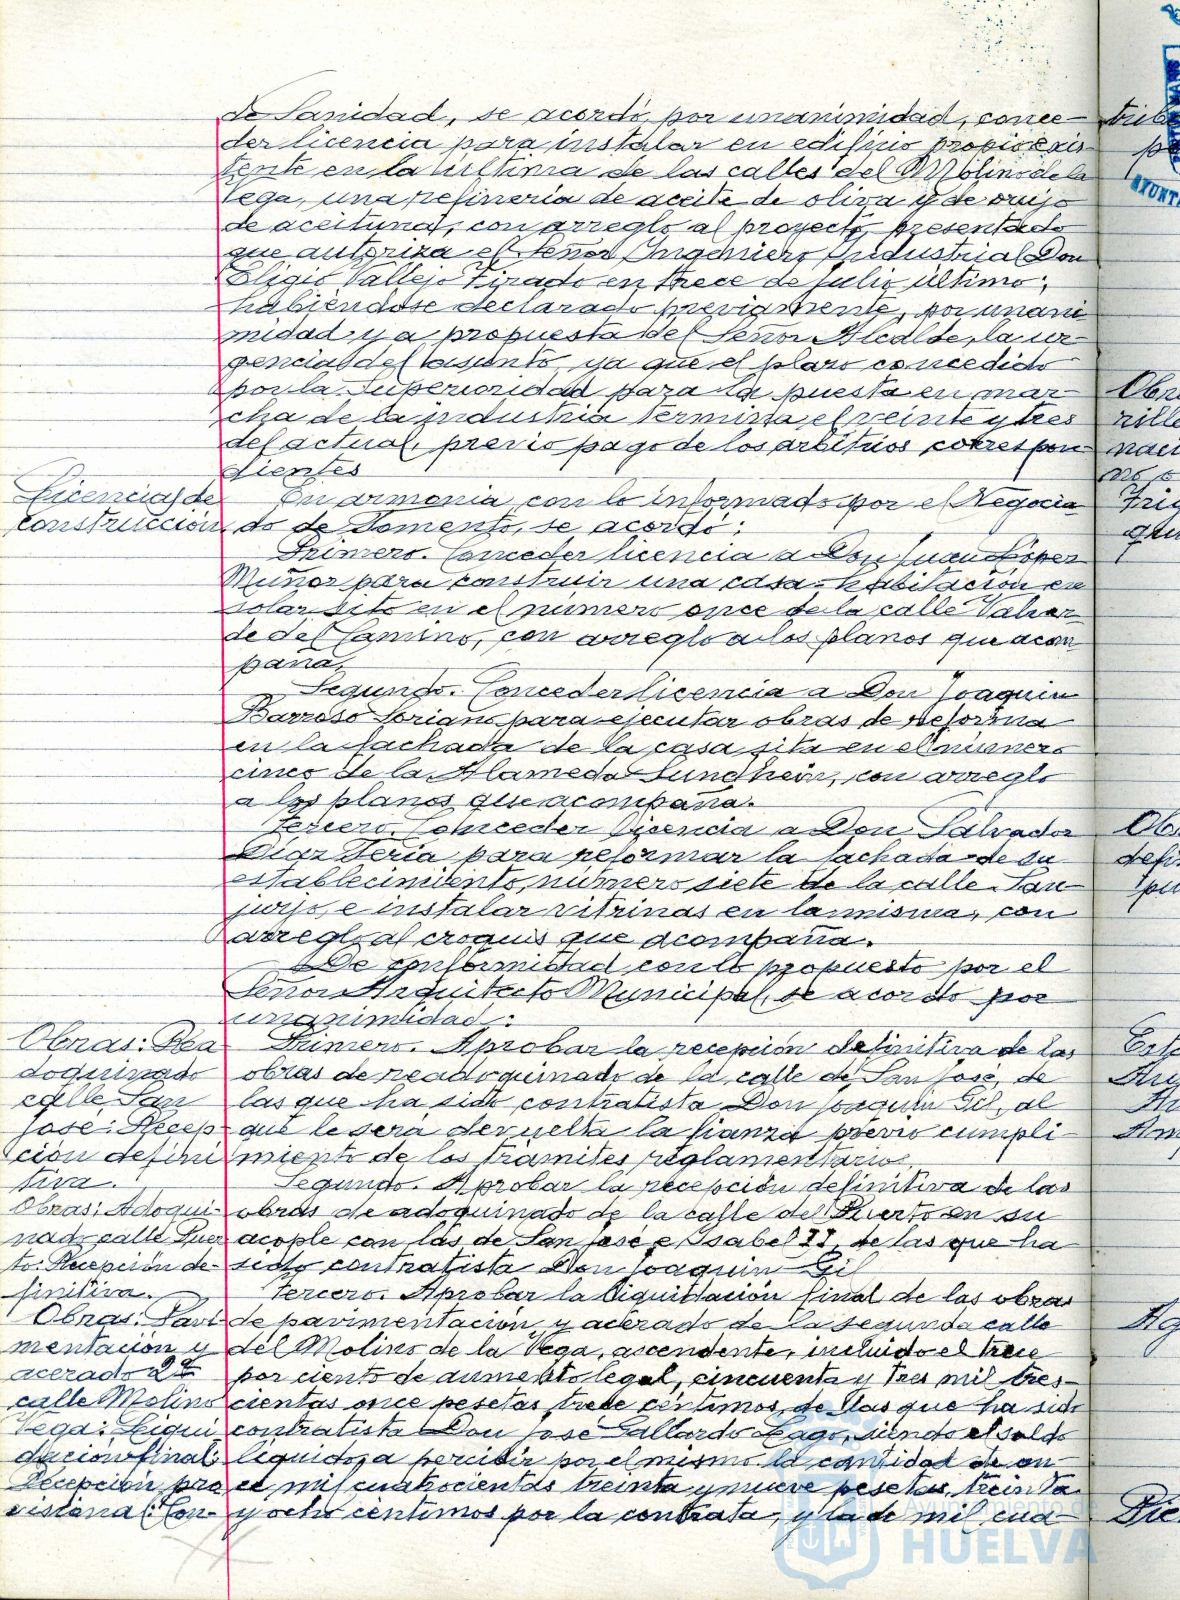 de Sanidad, se acordó, por unanimidad, conce-
der licencia para instalar en edificio propio exis-
tente en la última de las calles del Molino de la
Vega, una refinería de aceite de oliva y de orujo
de aceituna, con arreglo al proyecto presentado
que autoriza el Señor Ingeniero Industrial Don
Eligio Vallejo Tirado en trece de julio último;
habiéndose declarado previamente, por unani
midad y a propuesta del Señor Alcalde, la ur-
gencia del asunto, ya que el plazo concedido
por la Superioridad para la puesta en mar-
cha de la industria termina el veinte y tres
del actual, previo pago de los arbitrios correspon-
dientes
Licencias de
construcción
En armonía con lo informado por el Negocia
do de Fomento, se acordó:
Primero. Conceder licencia a Don Juan López
Muñoz para construir una casa-habitación en
solar sito en el número once de la calle Valver
de del Camino, con arreglo a los planos que acom
paña,
Segundo. Conceder licencia a Don Joaquín
Barroso Soriano para ejecutar obras de reforma
en la fachada de la casa sita en el número
cinco de la Alameda Sundhein, con arreglo
a los planos que acompaña.
Tercero. Conceder licencia a Don Salvador
Díaz Feria para reformar la fachada de su
establecimiento, número siete de la calle San-
jurjo, e instalar vitrinas en la misma, con
arreglo al croquis que acompaña.
De conformidad con lo propuesto por el
Señor Arquitecto Municipal, se acordó por
unanimidad:
Obras: Rea
doquinado
calle San
José: Recep-
ción defini
tiva.
Primero. Aprobar la recepción definitiva de las
obras de readoquinado de la calle de San José, de
las que ha sido contratista Don Joaquín Gil, al
que le será devuelta la fianza previo cumpli-
miento de los trámites reglamentarios.
Obras: Adoqui-
nado calle Puer
to: Recepción de-
finitiva.
Segundo. Aprobar la recepción definitiva de las
obras de adoquinado de la calle del Puerto en su
acople con las de San José e Isabel II, de las que ha
sido contratista Don Joaquín Gil
Obras: Pavi-
mentación y
acerado 2ª
calle Molino
Vega: Liqui
dación final:
Recepción pro
visional: Con-
Tercero. Aprobar la liquidación final de las obras
de pavimentación y acerado de la segunda calle
del Molino de la Vega, ascendente, incluido el trece
por ciento de aumento legal, cincuenta y tres mil tres-
cientas once pesetas, trece céntimos, de las que ha sido
contratista Don José Gallardo Lago, siendo el saldo
líquido a percibir por el mismo la cantidad de on-
ce mil cuatrocientas treinta y nueve pesetas, treinta
y ocho céntimos por la contrata, y la de mil cua-
Ayuntamiento de
HUELVA